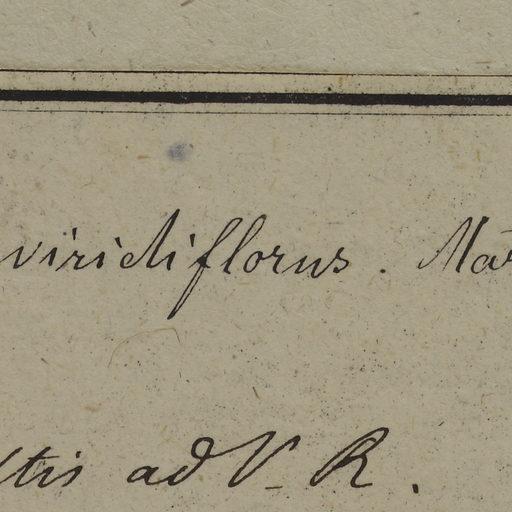 viridiflorus. Mar
stris ad V. R.